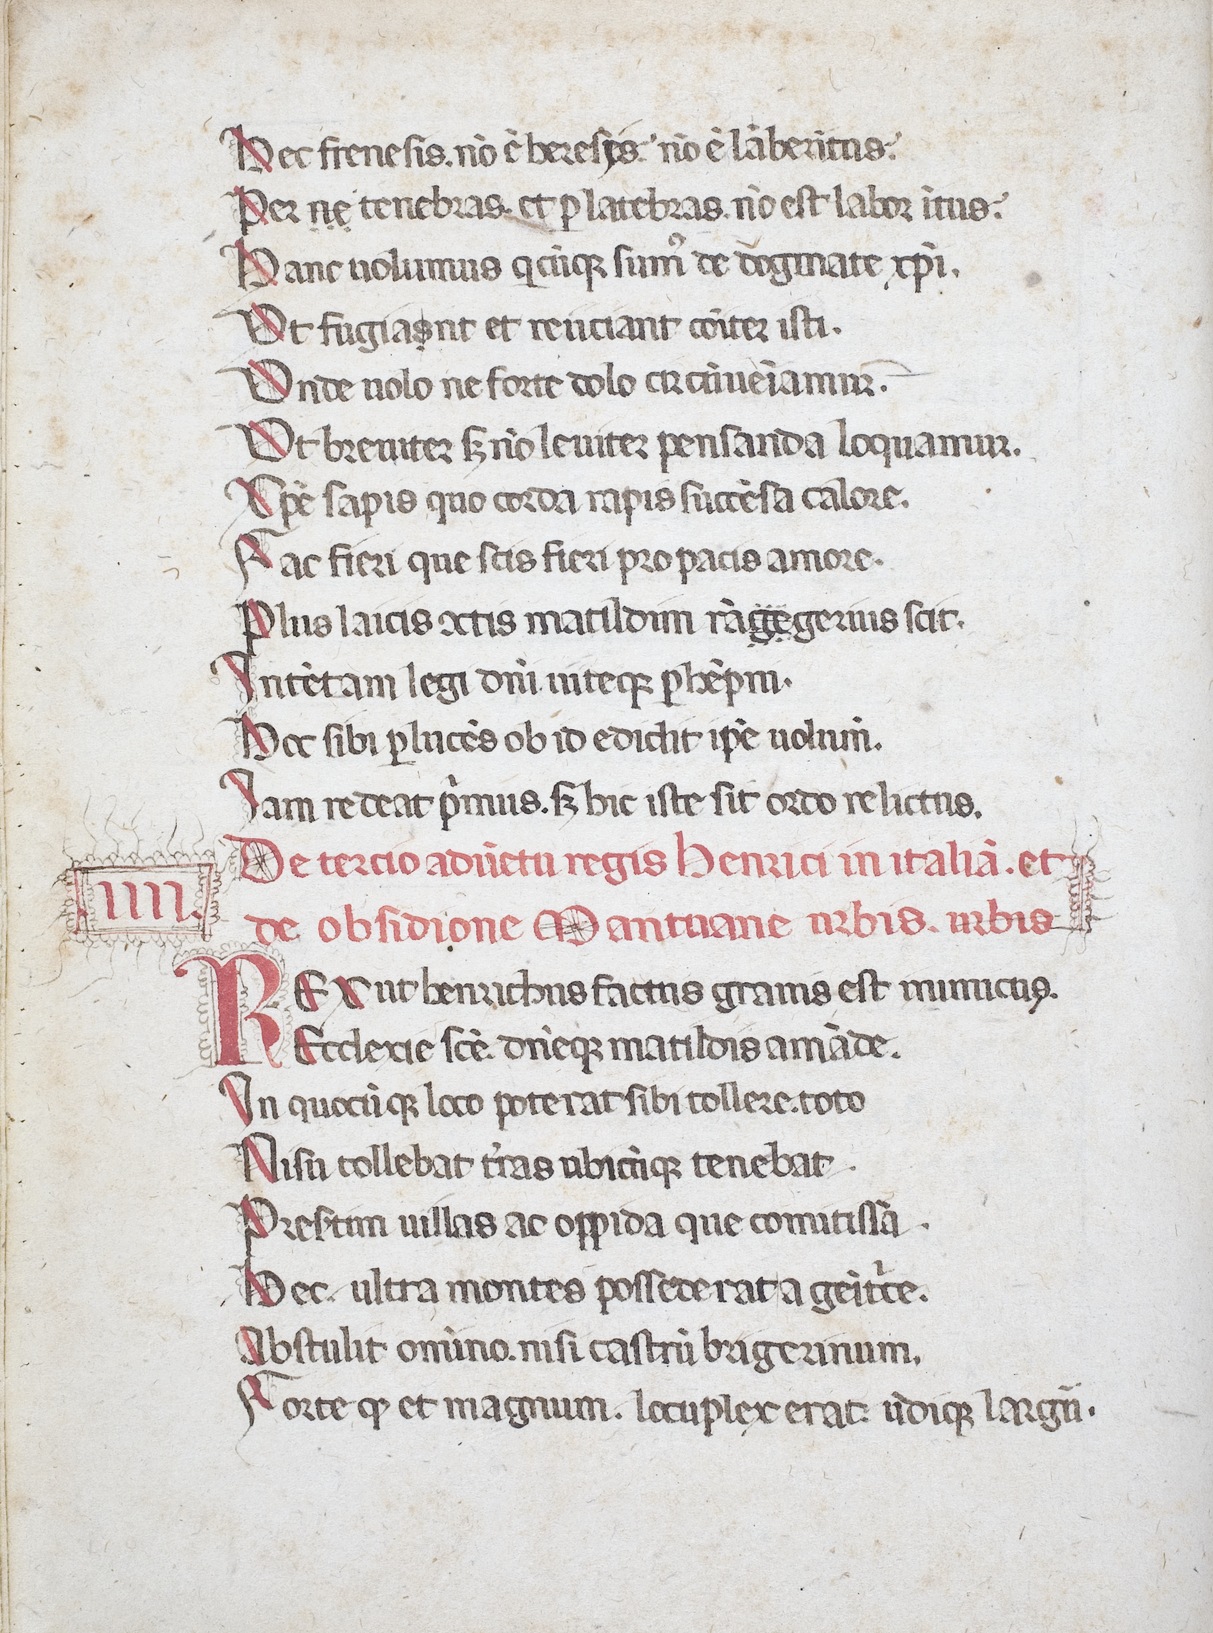 Hec frenesis. nō ē heresys. nō ē lāberitus.
Per ne tenebras. et p latebras. nō est labor itus.
Hanc uolumus qcūq; sum᷒ de dogmate xp̄i.
Ut fugiasnt et reuciant cōiter isti.
Unde uolo ne forte dolo circūueiamur.
Ut breuiter sꝫ nō leuiter pensanda loquamur.
Xpē sapis quo corda rapis succēsa calore.
Fac fieri que scis fieri pro pacis amore.
Plus laicis xtis matildim rāgegerius scit.
Intētam legi dn̄i uiteq; phēpni.
Hoc sibi plucēs ob id edicit ipē uolum̄.
Iam redeat p̄mus. sꝫ hic iste sit ordo relictus.
IIII. De tercio adūetu regis henrici in italiā. et
de obsidione Mantuane urbis. urbis
REX ut henrichus factus grauis est inimicus.
Ecclexie scē. dn̄eq; matildis amāde.
In quocūq; loco poterat sibi tollere. toto
Nisu tollebat tr̄as ubicūq; tenebat.
Prestim uillas ac oppida que comitissā.
Hec. ultra montes possederat a gēitⁱce.
Abstulit om̄ino. nisi castrū brigerinum.
Forte qꝫ et magnum. locuplex erat. ūdiq; largū.